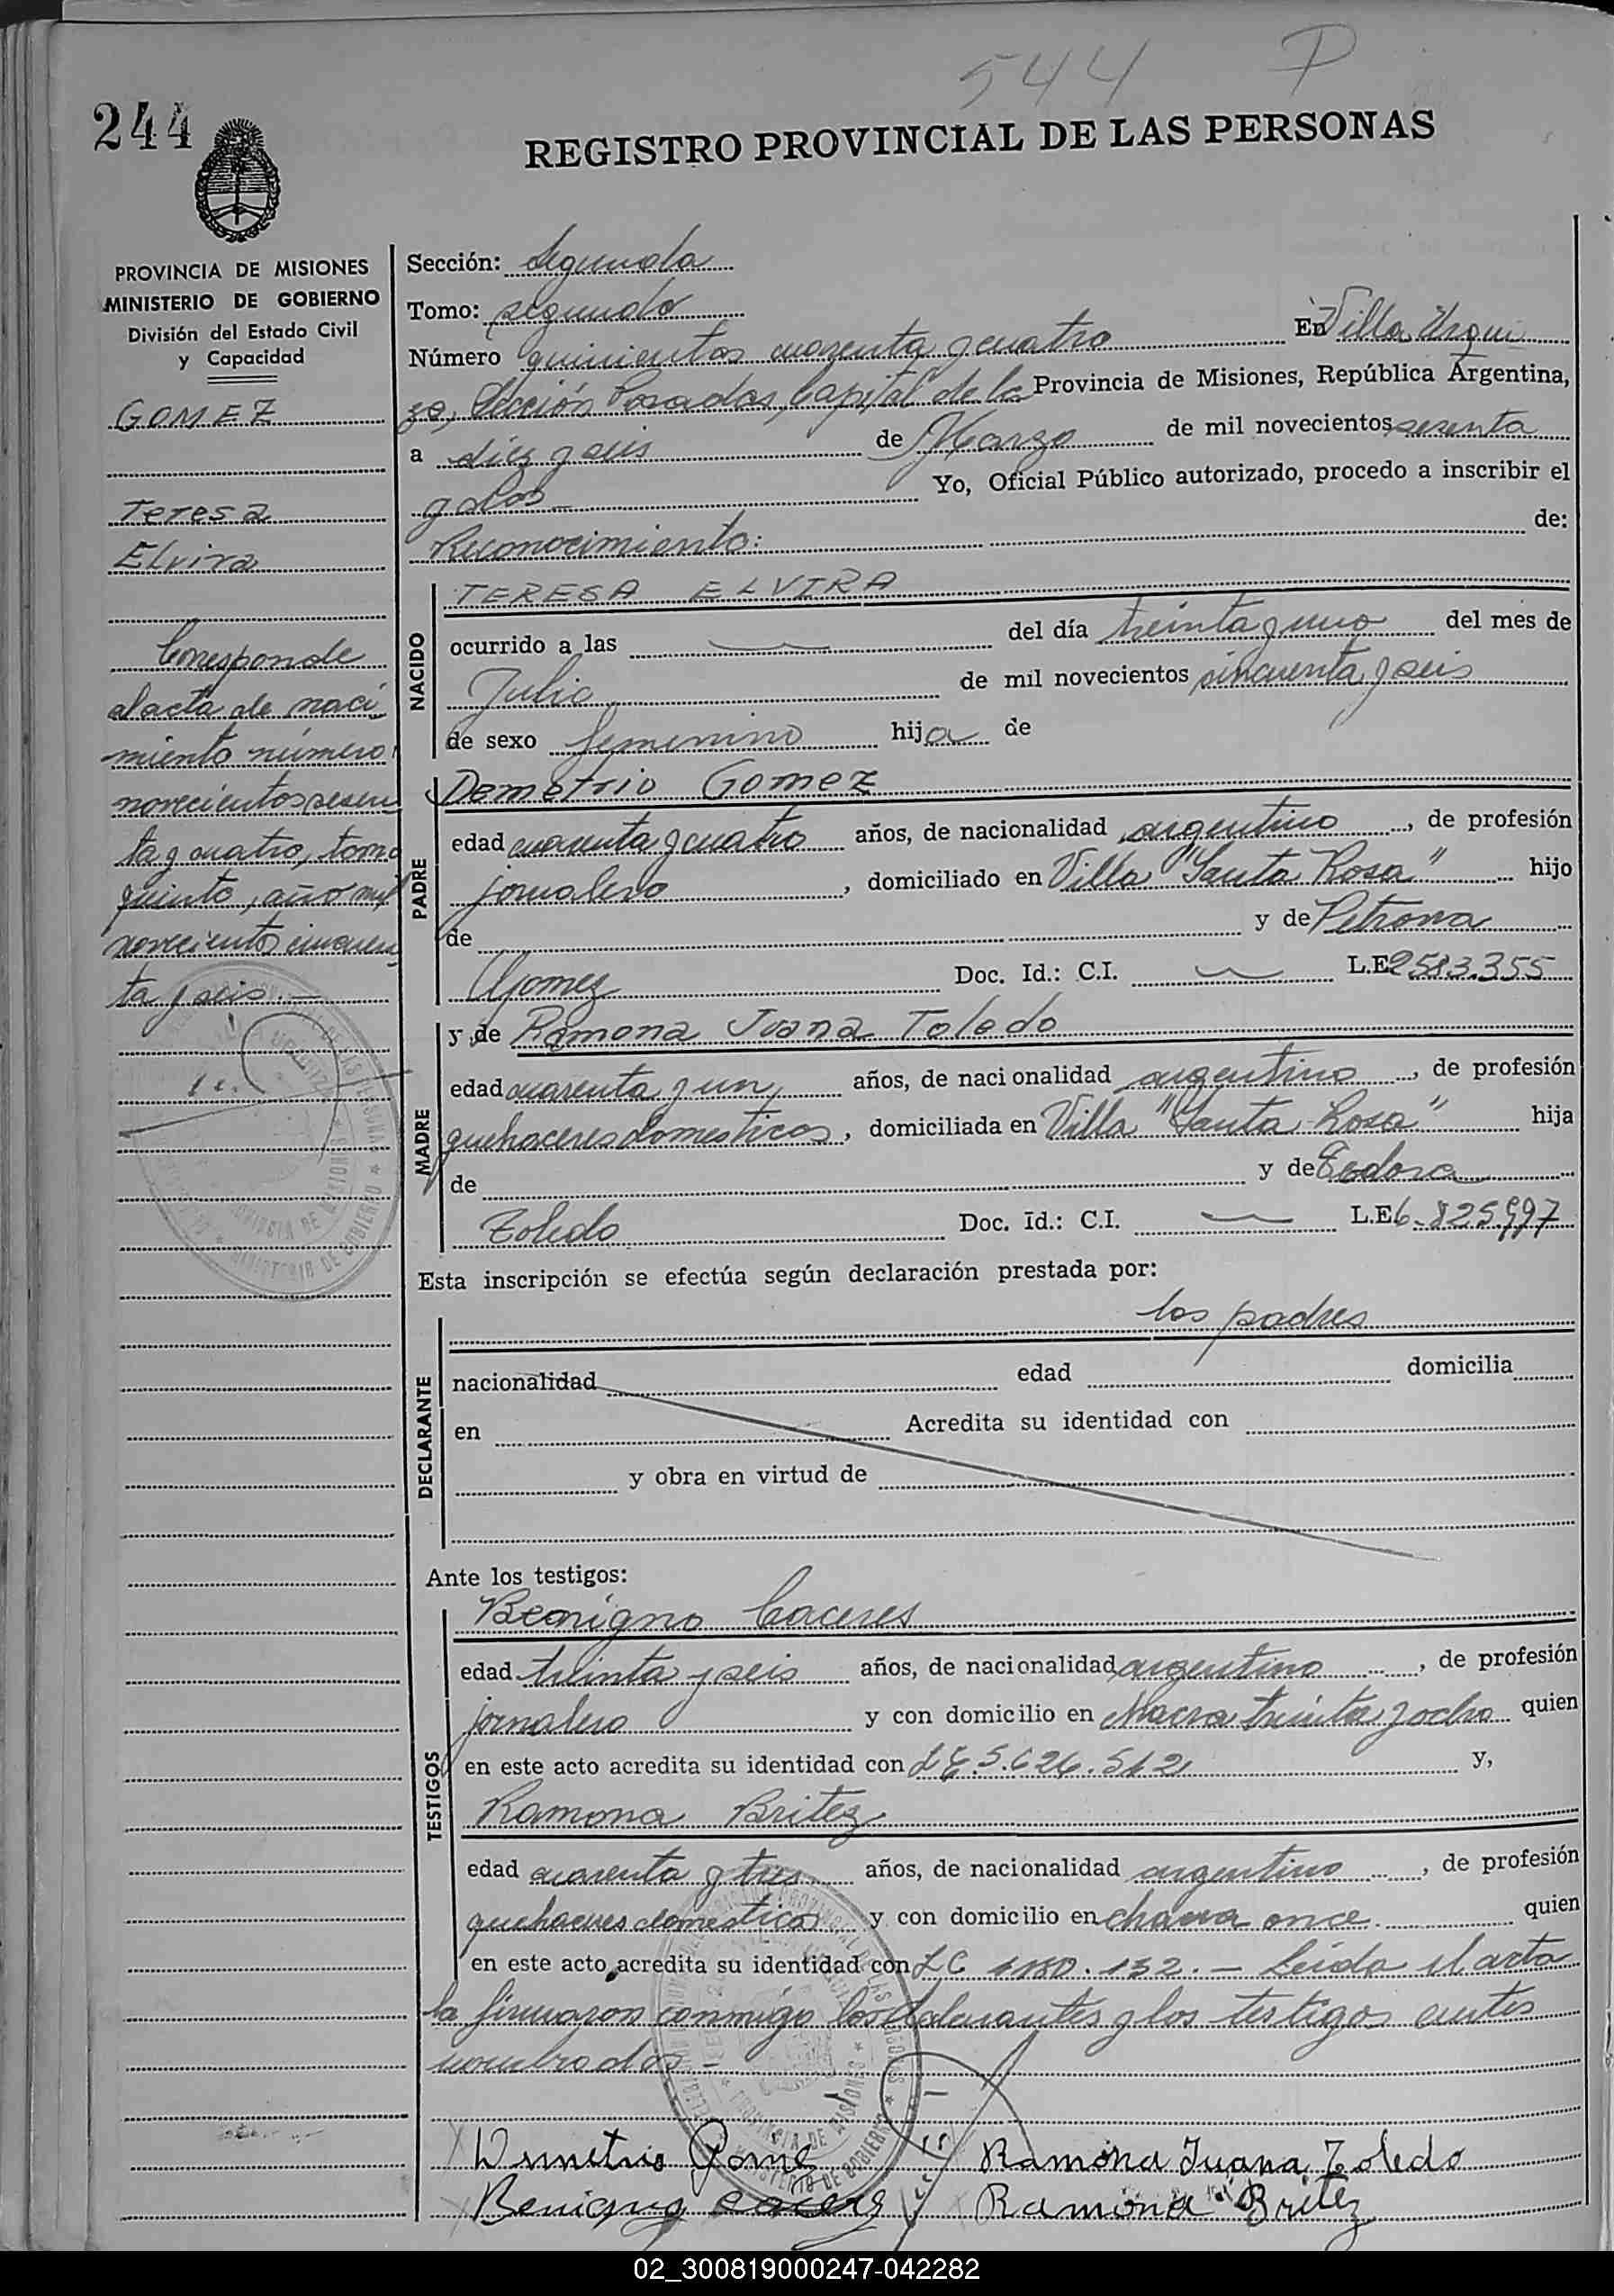 544 P
244
REGISTRO PROVINCIAL DE LAS PERSONAS
PROVINCIA DE MISIONES
MINISTERIO DE GOBIERNO
División del Estado Civil
y Capacidad
GOMEZ
Teresa
Elvira
Corresponde
al acta de naci
miento número
novecientos sesen
ta y cuatro, tomo
quinto, año mil
novecientos cincuen
ta y seis.-
Sección: Segunda
Tomo: segundo
Número quinientos cuarenta y cuatro En Villa Urqui
za, Sección Posadas, Capital de la Provincia de Misiones, República Argentina,
a diez y seis de Marzo de mil novecientos sesenta
y dos- Yo, Oficial Público autorizado, procedo a inscribir el
Reconocimiento: de:
NACIDO
TERESA ELVIRA
ocurrido a las del día treinta y uno del mes de
Julio de mil novecientos cincuenta y seis
de sexo femenino hija de
PADRE
Demetrio Gomez
edad cuarenta y cuatro años, de nacionalidad argentino, de profesión
jornalero, domiciliado en Villa "Santa Rosa" hijo
de y de Petrona
Gomez Doc. Id.: C.I. L.E 2583.355
MADRE
y de Ramona Juana Toledo
edad cuarenta y un años, de nacionalidad argentino, de profesión
quehaceres domesticos, domiciliada en Villa "Santa Rosa" hija
de y de Eodora
Toledo Doc. Id.: C.I. L.E 6.825.997
Esta inscripción se efectúa según declaración prestada por:
DECLARANTE
los padres
nacionalidad edad domicilia
en Acredita su identidad con
y obra en virtud de
Ante los testigos:
TESTIGOS
Benigno Caceres
edad treinta y seis años, de nacionalidad argentino, de profesión
jornalero y con domicilio en chacra treinta y ocho quien
en este acto acredita su identidad con LE.5.626.512 y,
Ramona Britez
edad cuarenta y tres años, de nacionalidad argentino, de profesión
quehaceres domesticos y con domicilio en chacra once quien
en este acto acredita su identidad con LC 1180.132.- Leida el acta
la firmaron conmigo los declarantes y los testigos antes
nombrados-
Demetrio Gome Ramona Juana Toledo
Benigno caceres Ramona Britez
02_300819000247-042282